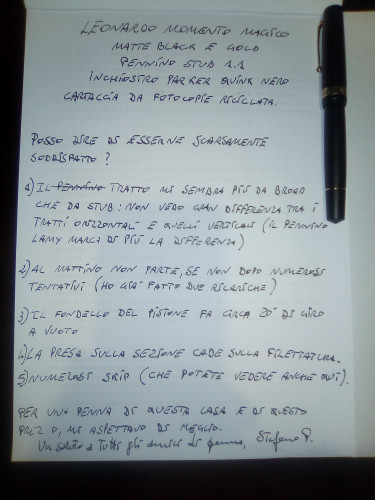 LEONARDO MOMENTO MAGICO
MATTE BLACK E GOLD
PENNINO STUB 1.1
INCHIOSTRO PARKER QUINK NERO
CARTACCIA DA FOTOCOPIE RICICLATA.
POSSO DIRE DI ESSERNE SCARSAMENTE
SODDISFATTO?
1) IL PENNINO TRATTO MI SEMBRA PIÙ DA BROAD
CHE DA STUB: NON VEDO GRAN DIFFERENZA TRA I
TRATTI ORIZZONTALI E QUELLI VERTICALI (IL PENNINO
LAMY MARCA DI PIÙ LA DIFFERENZA)
2) AL MATTINO NON PARTE, SE NON DOPO NUMEROSI
TENTATIVI (HO GIÀ FATTO DUE RICARICHE)
3) IL FONDELLO DEL PISTONE FA CIRCA 20° DI GIRO
A VUOTO
4) LA PRESA SULLA SEZIONE CADE SULLA FILETTATURA.
5) NUMEROSI SKIP (CHE POTETE VEDERE ANCHE QUI).
PER UNA PENNA DI QUESTA CASA E DI QUESTO
PREZZO, MI ASPETTAVO DI MEGLIO.
Un saluto a tutti gli amici di penna, Stefano P.